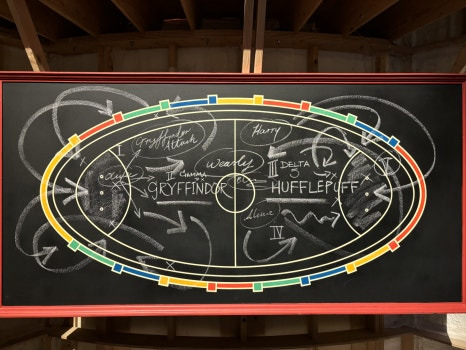 Gryffindor
Attack
Harry
I
Weasley
V
II GAMMA
III DELTA
5
GRYFFINDOR
HUFFLEPUFF
Alicia
IV